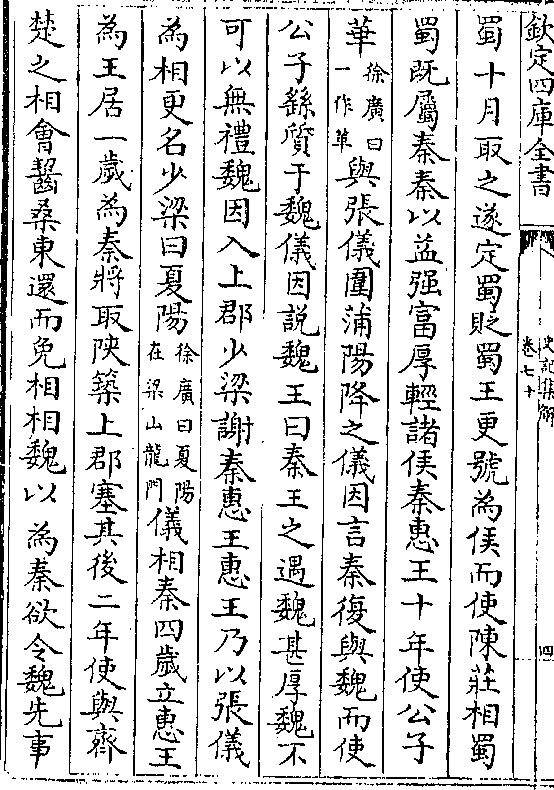 欽定四庫全書
史記集解
卷七十
四
蜀十月取之遂定蜀貶蜀王更號為侯而使陳莊相蜀
蜀既屬秦秦以益强富厚輕諸侯秦惠王十年使公子
華徐廣曰一作革與張儀圍蒲陽降之儀因言秦復與魏而使
公子繇質于魏儀因説魏王曰秦王之遇魏甚厚魏不
可以無禮魏因入上郡少梁謝秦惠王惠王乃以張儀
為相更名少梁曰夏陽徐廣曰夏陽在梁山龍門儀相秦四歲立惠王
為王居一歲為秦將取陜築上郡塞其後二年使與齊
楚之相會齧桑東還而免相相魏以為秦欲令魏先事